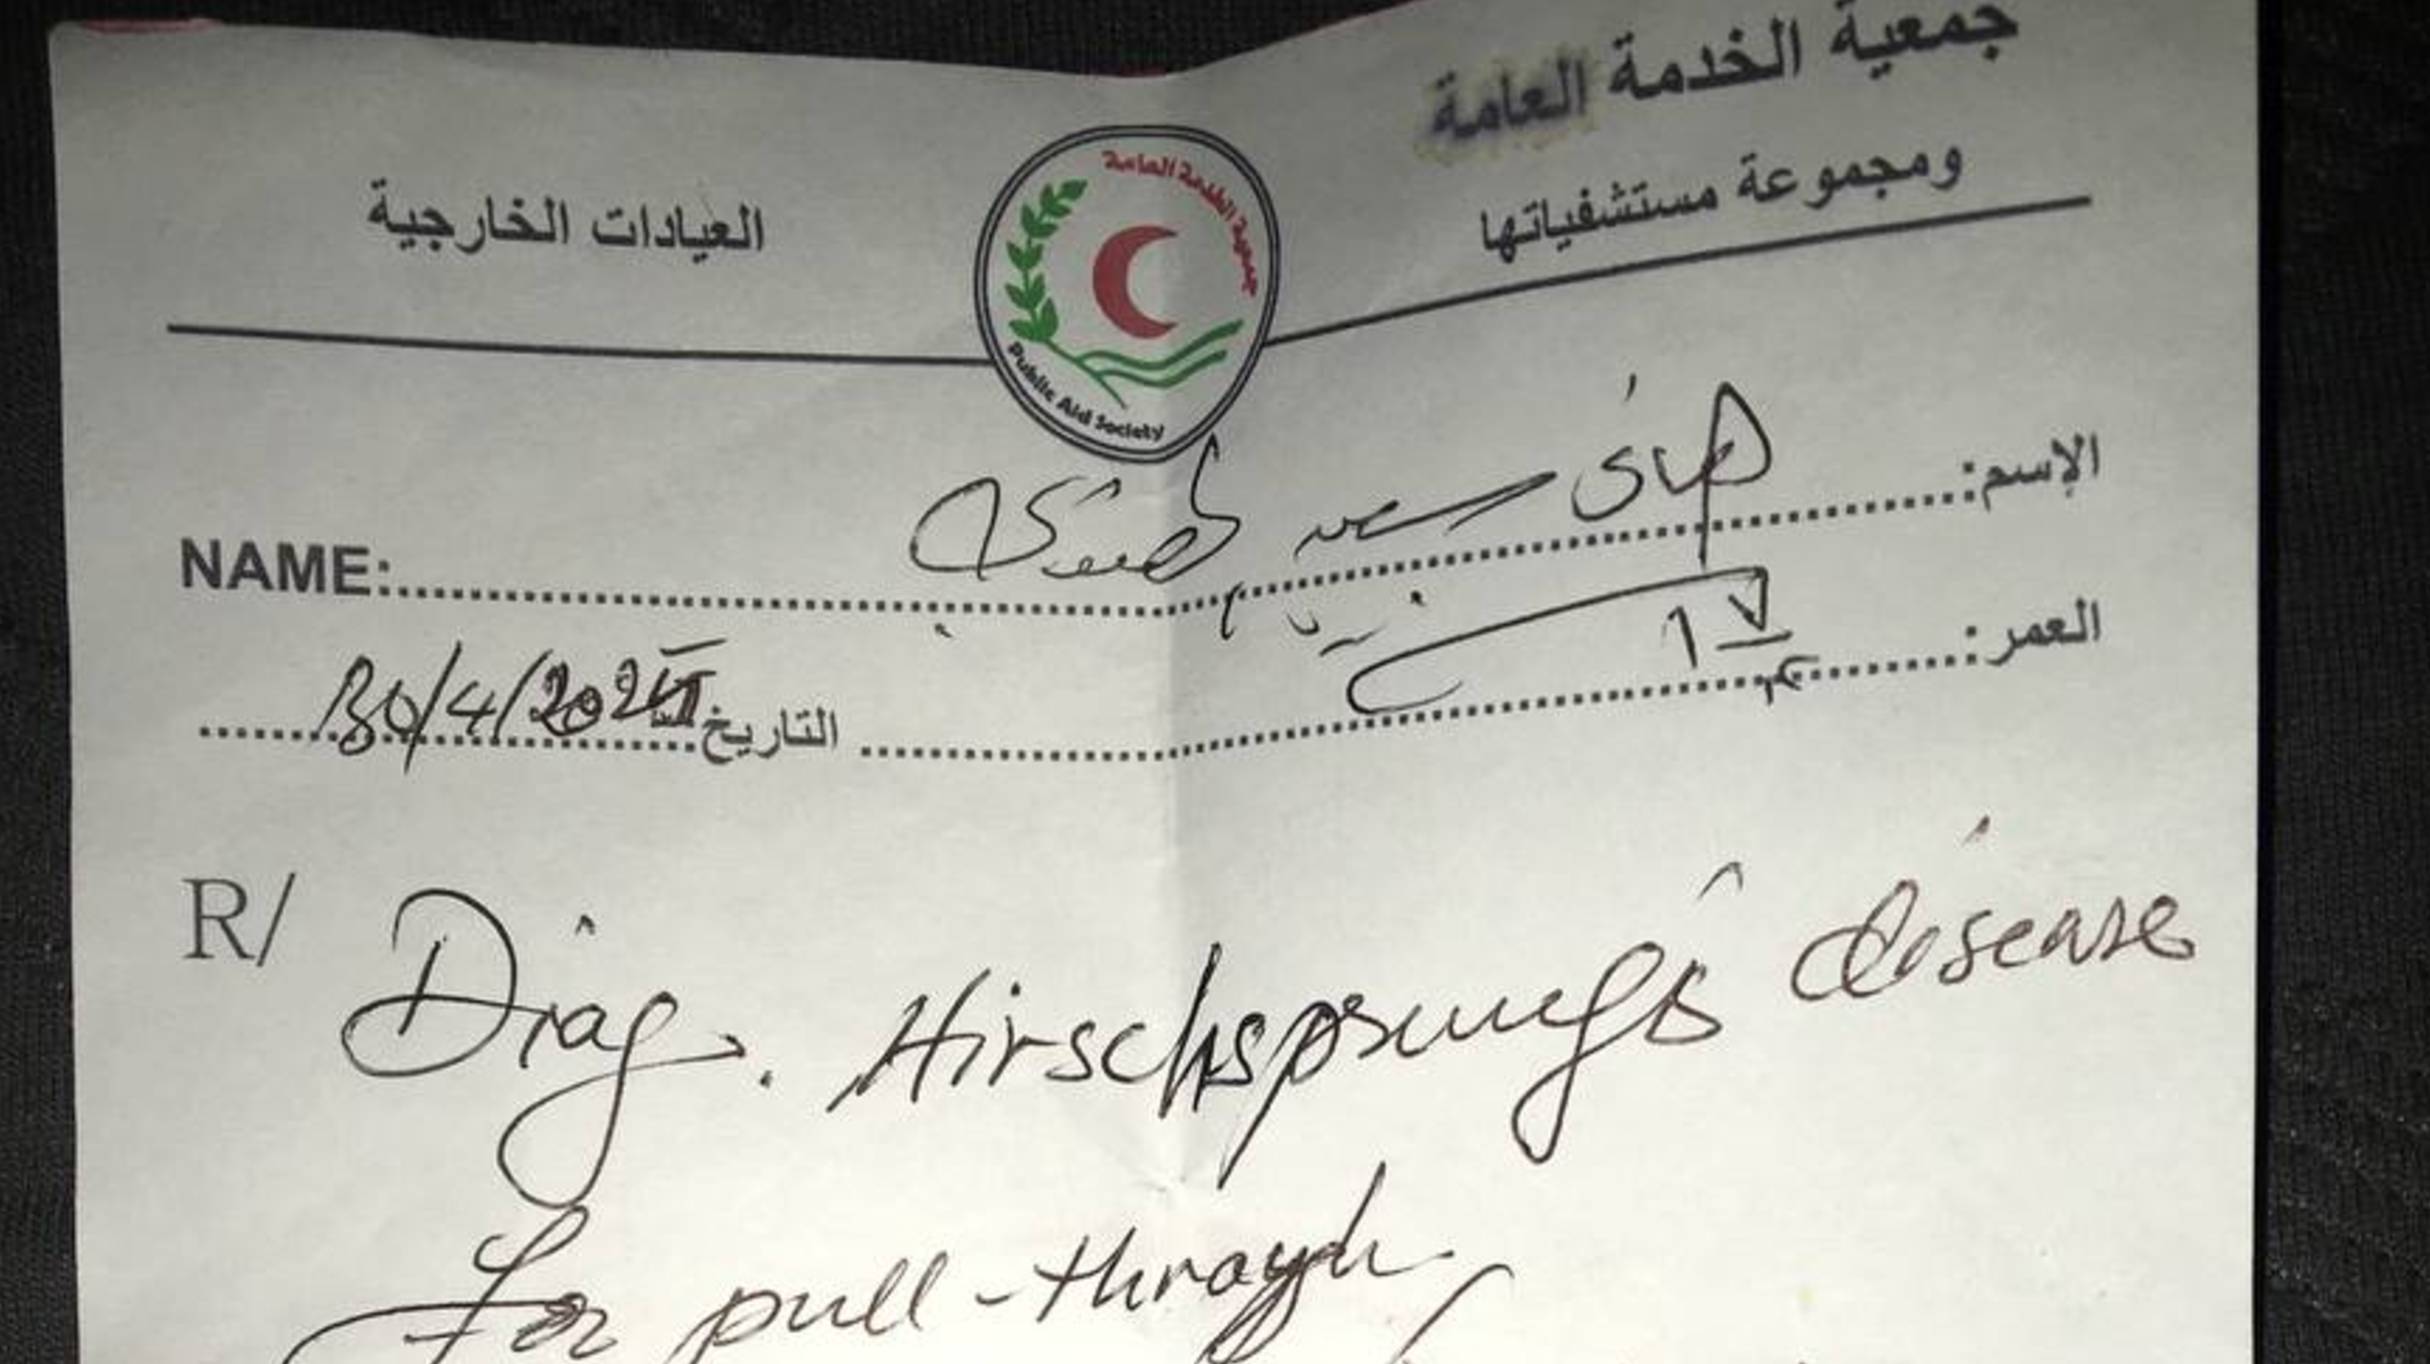 جمعية الخدمة العامة
ومجموعة مستشفياتها
العيادات الخارجية
جمعية الخدمة العامة
Public Aid Society
الإسم: هانى سعيد
NAME:
العمر: ١٧
التاريخ 30/4/2025
R/ Diag. Hirschsprung's disease
For pull-through